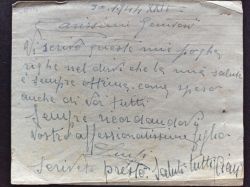 Carissimi Genitori
Vi scrivo queste mie poche
righe nel dirvi che la mia salute
è sempre ottima, così spero
anche di voi tutti
Sempre ricordandovi
vostro affezionatissimo figlio
Scrivete presto. Saluti tutti